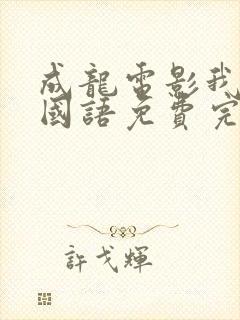 成龍電影我
國語免費完
許戈輝